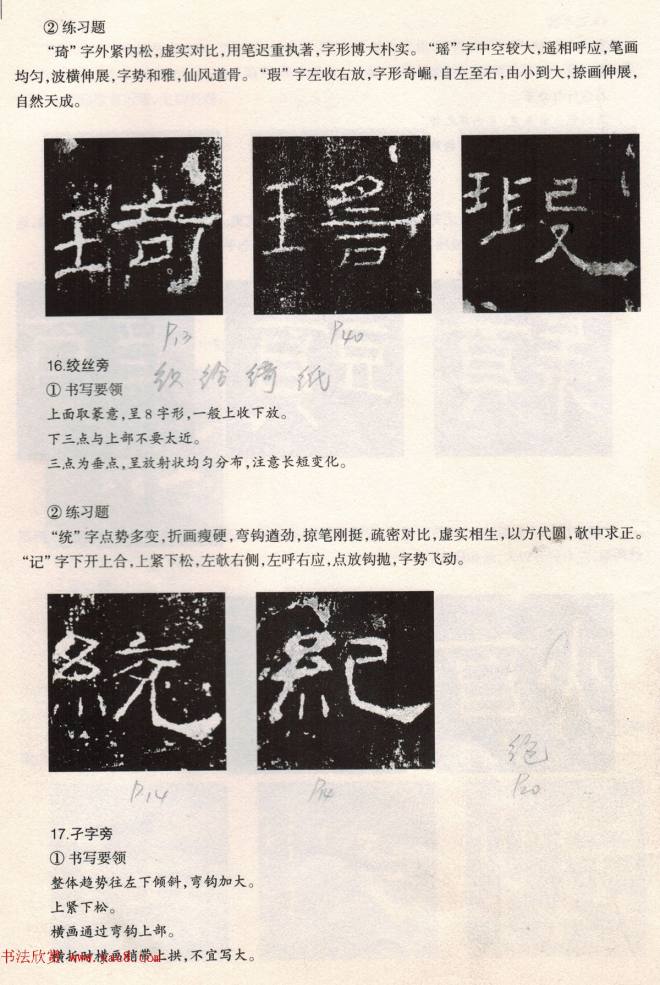 ② 练习题
“琦”字外紧内松,虚实对比,用笔迟重执著,字形博大朴实。“瑶”字中空较大,遥相呼应,笔画
均匀,波横伸展,字势和雅,仙风道骨。“瑕”字左收右放,字形奇崛,自左至右,由小到大,捺画伸展,
自然天成。
琦 瑶 瑕
P13 P40
16.绞丝旁
级 给 绮 纸
① 书写要领
上面取篆意,呈8字形,一般上收下放。
下三点与上部不要太近。
三点为垂点,呈放射状均匀分布,注意长短变化。
② 练习题
“统”字点势多变,折画瘦硬,弯钩遒劲,掠笔刚挺,疏密对比,虚实相生,以方代圆,欹中求正。
“记”字下开上合,上紧下松,左欹右侧,左呼右应,点放钩抛,字势飞动。
統 紀
绝
P14 P14 P20
17.子字旁
① 书写要领
整体趋势往左下倾斜,弯钩加大。
上紧下松。
横画通过弯钩上部。
横折时横画稍带上拱,不宜写大。
书法欣赏